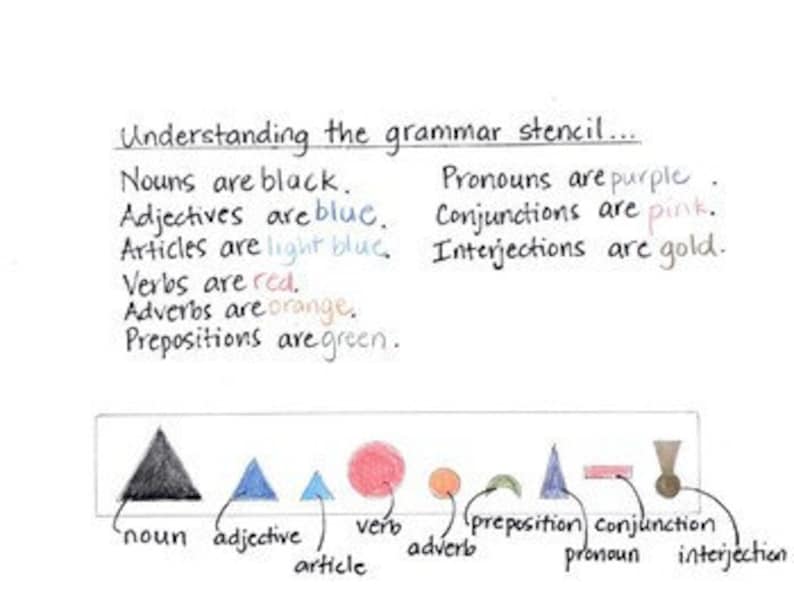 Understanding the grammar stencil...
Nouns are black.
Adjectives are blue.
Articles are light blue.
Verbs are red.
Adverbs are orange.
Prepositions are green.
Pronouns are purple.
Conjunctions are pink.
Interjections are gold.
noun
adjective
article
verb
adverb
preposition
pronoun
conjunction
interjection